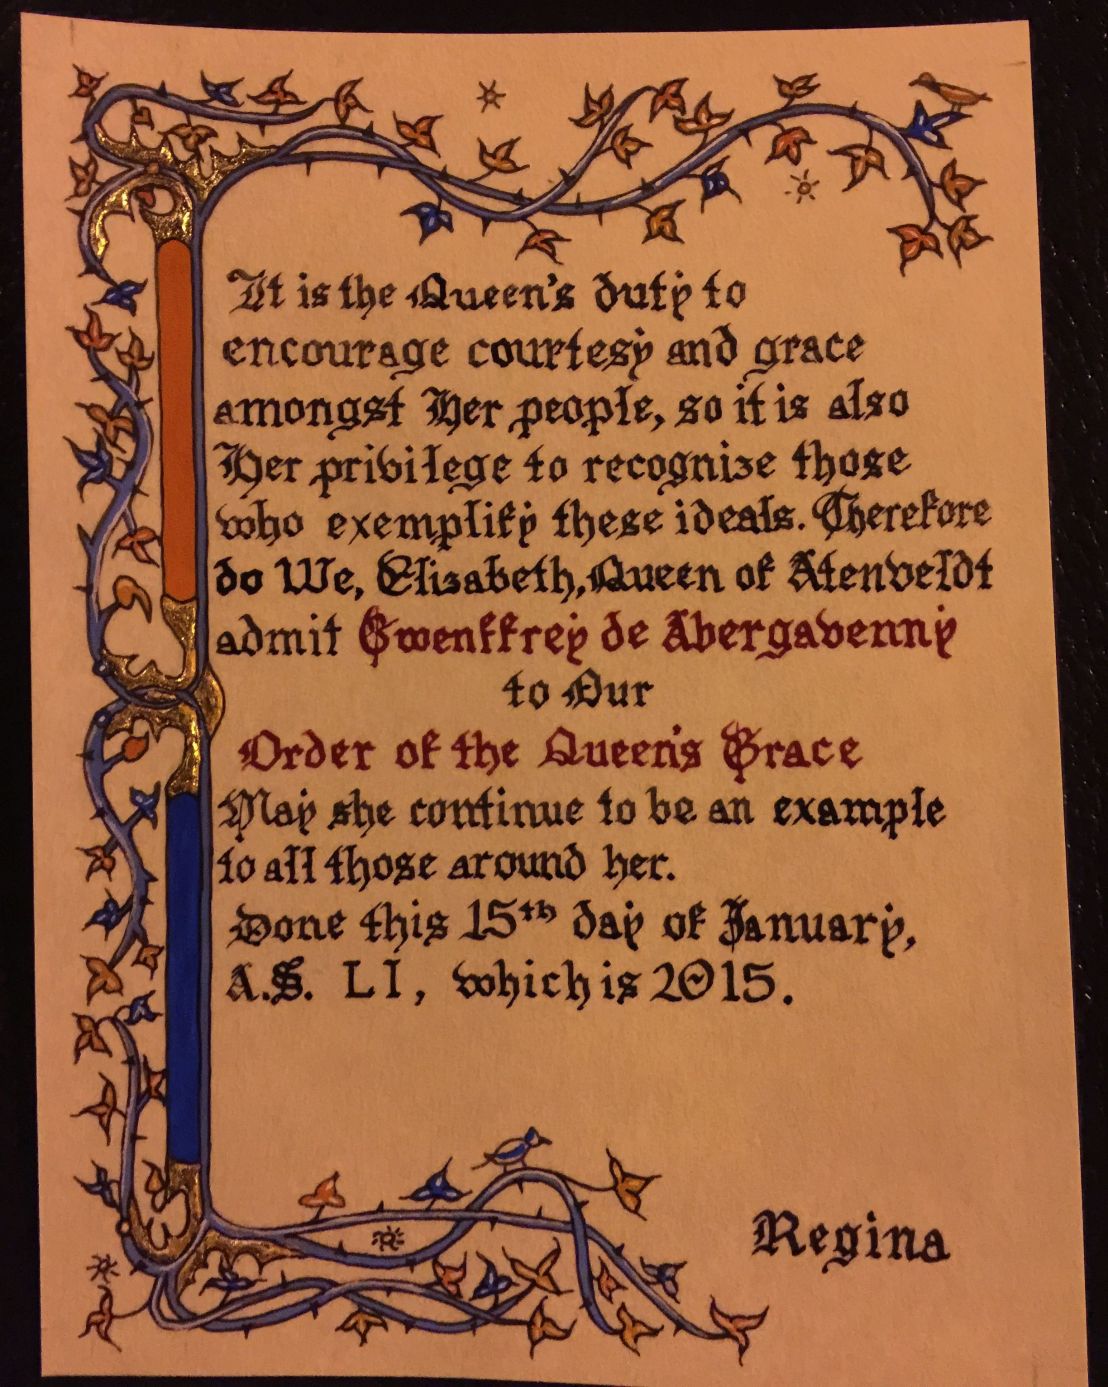 It is the Queen's duty to
encourage courtesy and grace
amongst Her people, so it is also
Her privilege to recognize those
who exemplify these ideals. Therefore
do We, Elizabeth, Queen of Atenveldt
admit Gwenffrey de Abergavenny
to Our
Order of the Queen's Grace
May she continue to be an example
to all those around her.
Done this 15th day of January,
A.S. LI, which is 2015.
Regina